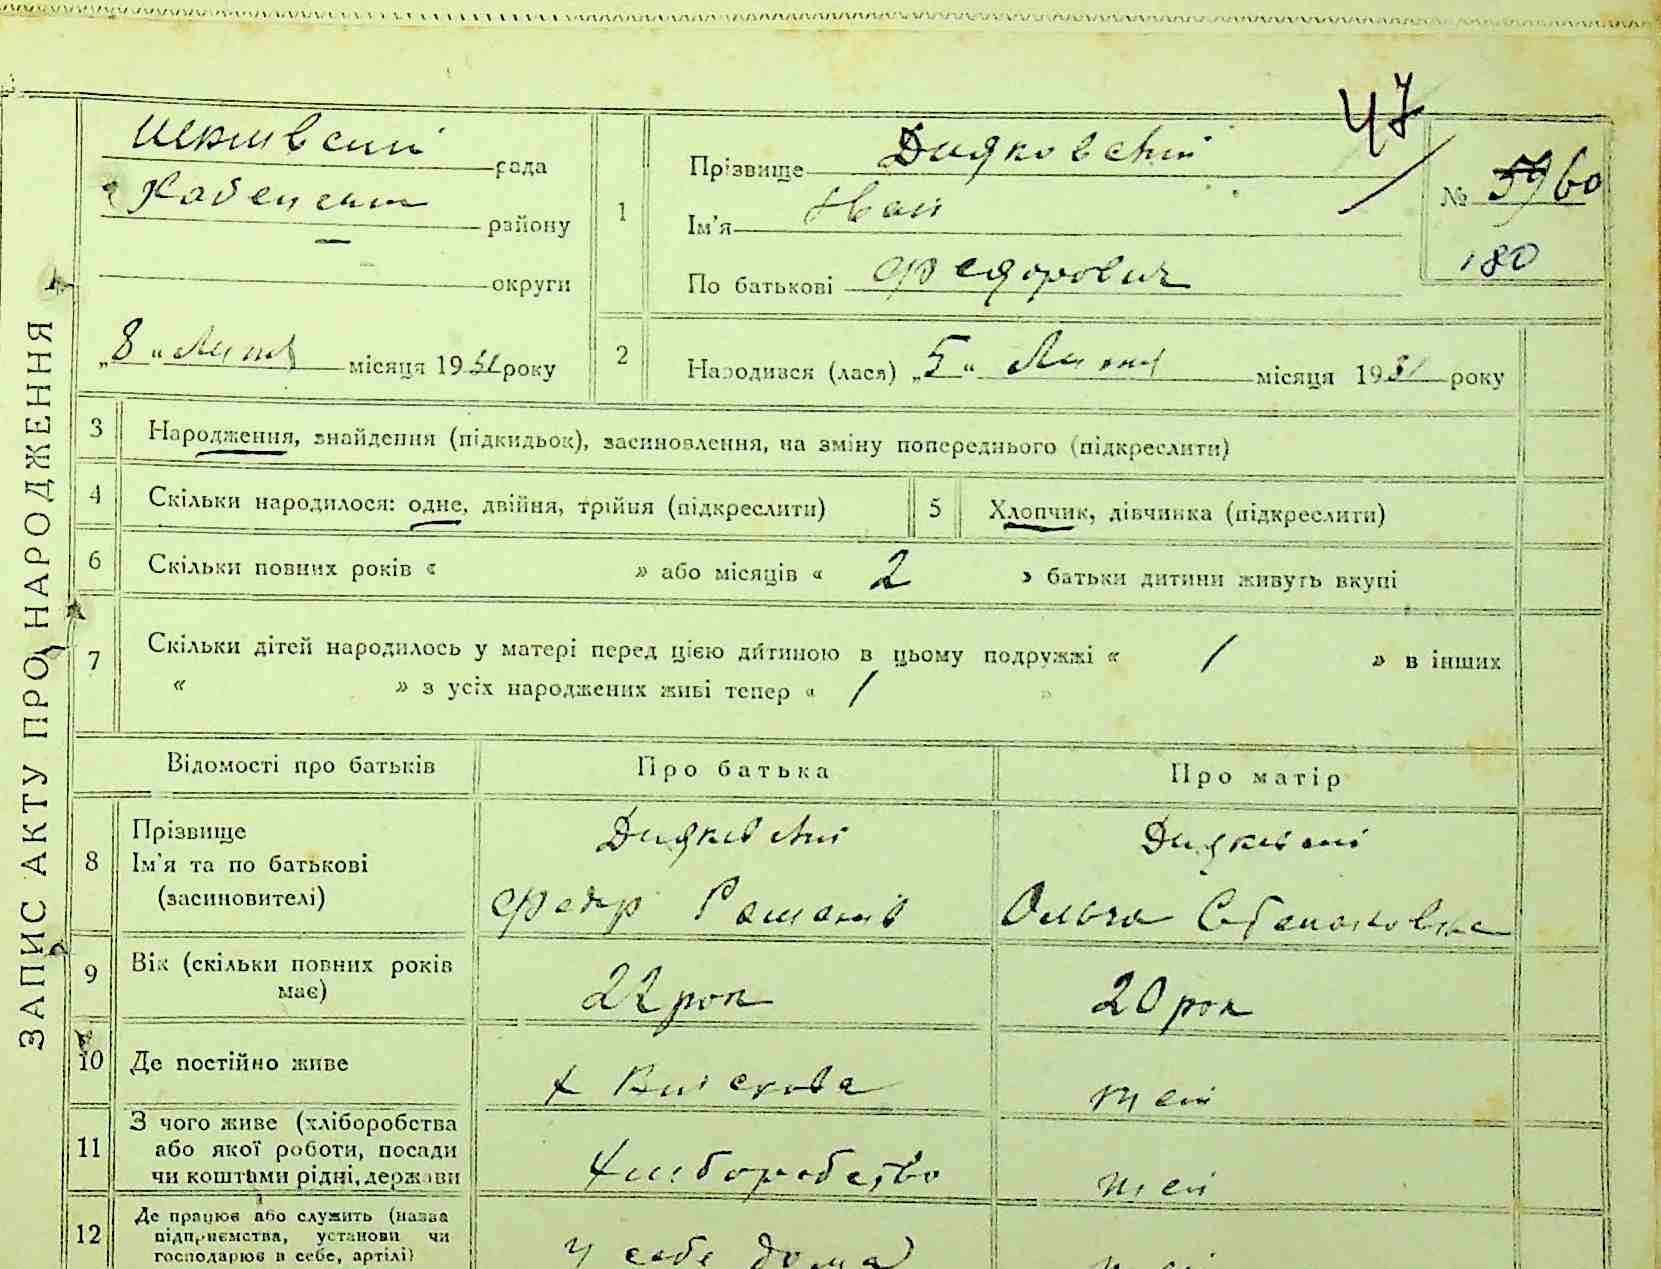 47
рада
району
округи
„8“ Лип місяця 1931 року
ЗАПИС АКТУ ПРО НАРОДЖЕННЯ
1
Прізвище Дидковский
Ім'я Иван
По батькові Федорович
№ 60
180
2 Народився (лася) „5“ місяця 1931 року
3 Народження, знайдення (підкидьок), засиновлення, на зміну попереднього (підкреслити)
4 Скільки народилося: одне, двійня, трійня (підкреслити) 5 Хлопчик, дівчинка (підкреслити)
6 Скільки повних років « » або місяців « 2 » батьки дитини живуть вкупі
7 Скільки дітей народилось у матері перед цією дитиною в цьому подружжі « 1 » в інших
« » з усіх народжених живі тепер « 1 »
Відомості про батьків Про батька Про матір
8 Прізвище
Ім'я та по батькові
(засиновителі)
Дидковский
Федор
Ольга Степановна
9 Вік (скільки повних років
має)
22 рок 20 рок
10 Де постійно живе
11 З чого живе (хліборобства
або якої роботи, посади
чи коштами рідні, держави
хлиборобство
12 Де працює або служить (назва
підприємства, установи чи
господарює в себе, артілі)
у себе дома